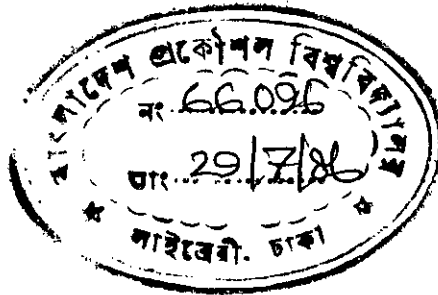 বাংলাদেশ প্রকৌশল বিশ্ববিদ্যালয়
নং 66096
তাং 29/7/86
লাইব্রেরী. ঢাকা